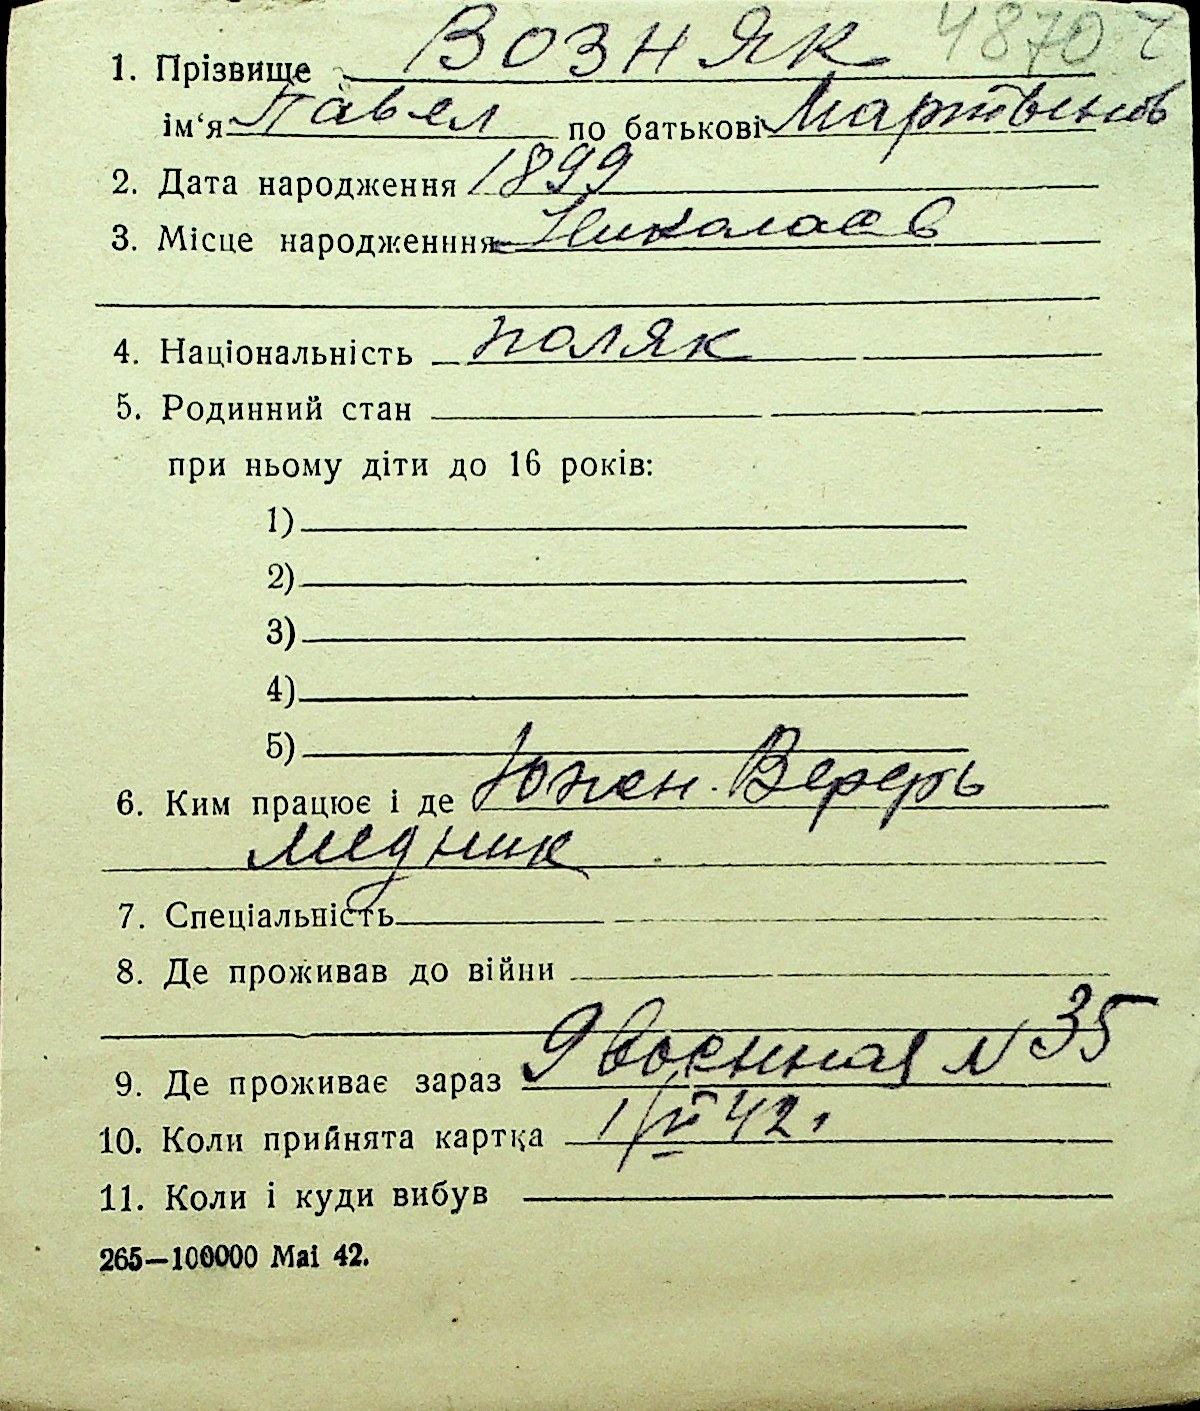 1. Прізвище ВОЗНЯК 4870
ім'я Павел по батькові Мартынов
2. Дата народження 1899
3. Місце народженння Николаев
4. Національність поляк
5. Родинний стан
при ньому діти до 16 років:
1)
2)
3)
4)
5)
6. Ким працює і де Южн. Верфь
медник
7. Спеціальність
8. Де проживав до війни
9. Де проживає зараз 9 военная N 35
10. Коли прийнята картка 42
11. Коли і куди вибув
265—100000 Mai 42.